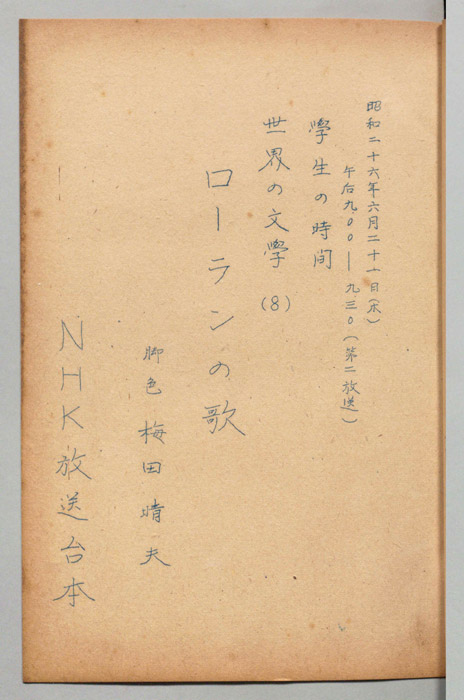 昭和二十六年六月二十一日(木)
午后九.〇〇―九.三〇(第二放送)
學生の時間
世界の文學(8)
ローランの歌
脚色 梅田晴夫
NHK放送台本